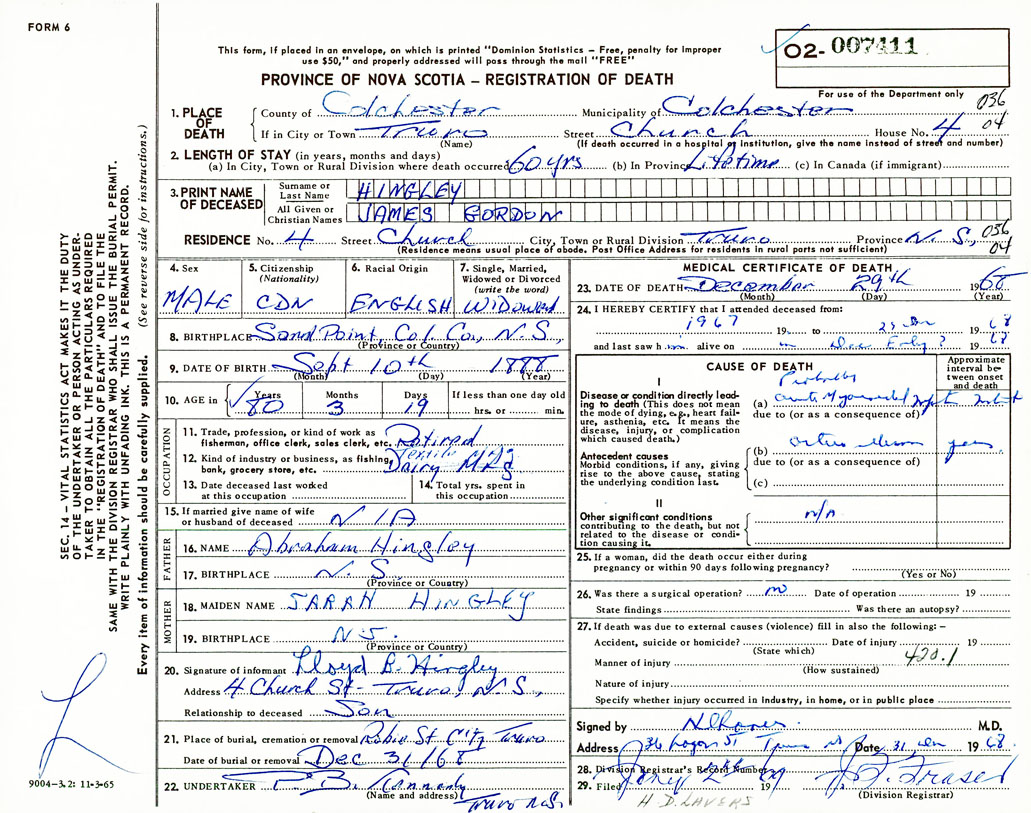 FORM 6
This form, if placed in an envelope, on which is printed "Dominion Statistics – Free, penalty for improper
use $50," and properly addressed will pass through the mail "FREE"
PROVINCE OF NOVA SCOTIA – REGISTRATION OF DEATH
02-007411
For use of the Department only
036
04
1. PLACE OF DEATH
County of Colchester Municipality of Colchester
If in City or Town Truro Street Church House No. 4
(Name) (If death occurred in a hospital or institution, give the name instead of street and number)
2. LENGTH OF STAY (in years, months and days)
(a) In City, Town or Rural Division where death occurred 60 yrs (b) In Province Lifetime (c) In Canada (if immigrant)
3. PRINT NAME OF DECEASED
Surname or Last Name HINGLEY
All Given or Christian Names JAMES GORDON
RESIDENCE No. 4 Street Church City, Town or Rural Division Truro Province N.S,
(Residence means usual place of abode. Post Office Address for residents in rural parts not sufficient)
036
04
4. Sex
MALE
5. Citizenship (Nationality)
CDN
6. Racial Origin
ENGLISH
7. Single, Married, Widowed or Divorced (write the word)
Widowed
8. BIRTHPLACE Sand Point, Col. Co., N.S,
(Province or Country)
9. DATE OF BIRTH Sept 10th 1888
(Month) (Day) (Year)
10. AGE in
Years Months Days If less than one day old
80 3 19 hrs. or min.
OCCUPATION
11. Trade, profession, or kind of work as
fisherman, office clerk, sales clerk, etc. Retired
12. Kind of industry or business, as fishing,
bank, grocery store, etc. Dairy
13. Date deceased last worked
at this occupation
14. Total yrs. spent in
this occupation
15. If married give name of wife
or husband of deceased N/A
FATHER
16. NAME Abraham Hingley
17. BIRTHPLACE N.S
(Province or Country)
MOTHER
18. MAIDEN NAME SARAH HINGLEY
19. BIRTHPLACE N.S.
(Province or Country)
20. Signature of informant Lloyd B. Hingley
Address 4 Church St- Truro, N.S,
Relationship to deceased Son
21. Place of burial, cremation or removal Robie St Truro
Date of burial or removal Dec 31/68
22. UNDERTAKER
(Name and address) Truro N.S,
MEDICAL CERTIFICATE OF DEATH
23. DATE OF DEATH December 29th 1968
(Month) (Day) (Year)
24. I HEREBY CERTIFY that I attended deceased from:
1967 19 to 1968
and last saw him alive on 1968
CAUSE OF DEATH
Approximate interval between onset and death
I
Probably
Disease or condition directly leading
to death (This does not mean
the mode of dying, e.g., heart failure,
asthenia, etc. It means the
disease, injury, or complication
which caused death.)
(a) acute Myocardial
due to (or as a consequence of)
Antecedent causes
Morbid conditions, if any, giving
rise to the above cause, stating
the underlying condition last.
(b) years
due to (or as a consequence of)
(c)
II
Other significant conditions
contributing to the death, but not
related to the disease or condition
causing it.
n/a
25. If a woman, did the death occur either during
pregnancy or within 90 days following pregnancy?
(Yes or No)
26. Was there a surgical operation? no Date of operation 19
State findings Was there an autopsy?
27. If death was due to external causes (violence) fill in also the following: –
Accident, suicide or homicide? Date of injury 19
(State which)
Manner of injury 420.1
(How sustained)
Nature of injury
Specify whether injury occurred in industry, in home, or in public place
Signed by M.D.
Address 36 St Date 31 1968
28. Division Registrar's Record Number
29. Filed 19
(Division Registrar)
H D LAVERS
SEC. 14 – VITAL STATISTICS ACT MAKES IT THE DUTY
OF THE UNDERTAKER OR PERSON ACTING AS UNDER-
TAKER TO OBTAIN ALL THE PARTICULARS REQUIRED
IN THE "REGISTRATION OF DEATH" AND TO FILE THE
SAME WITH THE DIVISION REGISTRAR WHO SHALL ISSUE THE BURIAL PERMIT.
WRITE PLAINLY WITH UNFADING INK. THIS IS A PERMANENT RECORD.
Every item of information should be carefully supplied. (See reverse side for instructions.)
9004-3.2: 11-3-65